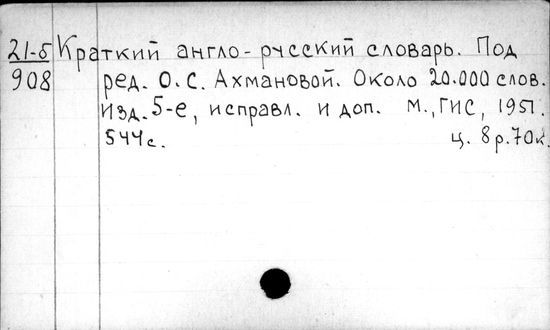 21-5 Краткий англо-русский словарь. Под
908 ред. О.С. Ахмановой. Около 20.000 слов.
Изд. 5-е, исправл. и доп. М., ГИС, 1951.
544с. ц. 8р.70к.